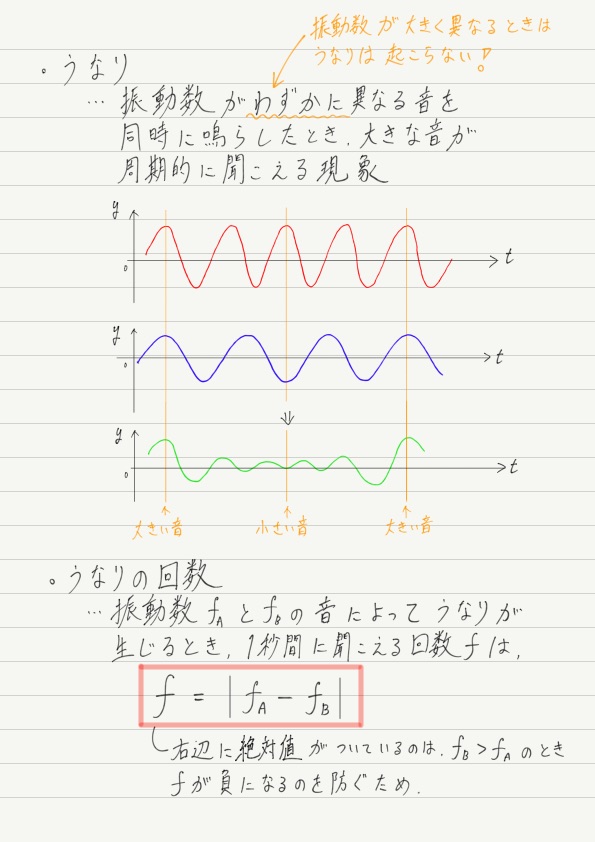 振動数が大きく異なるときは
うなりは起こらない!
・うなり
… 振動数がわずかに異なる音を
同時に鳴らしたとき、大きな音が
周期的に聞こえる現象
y
0
t
y
0
t
⇓
y
0
t
↑ ↑ ↑
大きい音 小さい音 大きい音
・うなりの回数
… 振動数 fA と fB の音によってうなりが
生じるとき、1秒間に聞こえる回数 f は、
f = | fA − fB |
右辺に絶対値がついているのは、fB > fA のとき
f が負になるのを防ぐため.